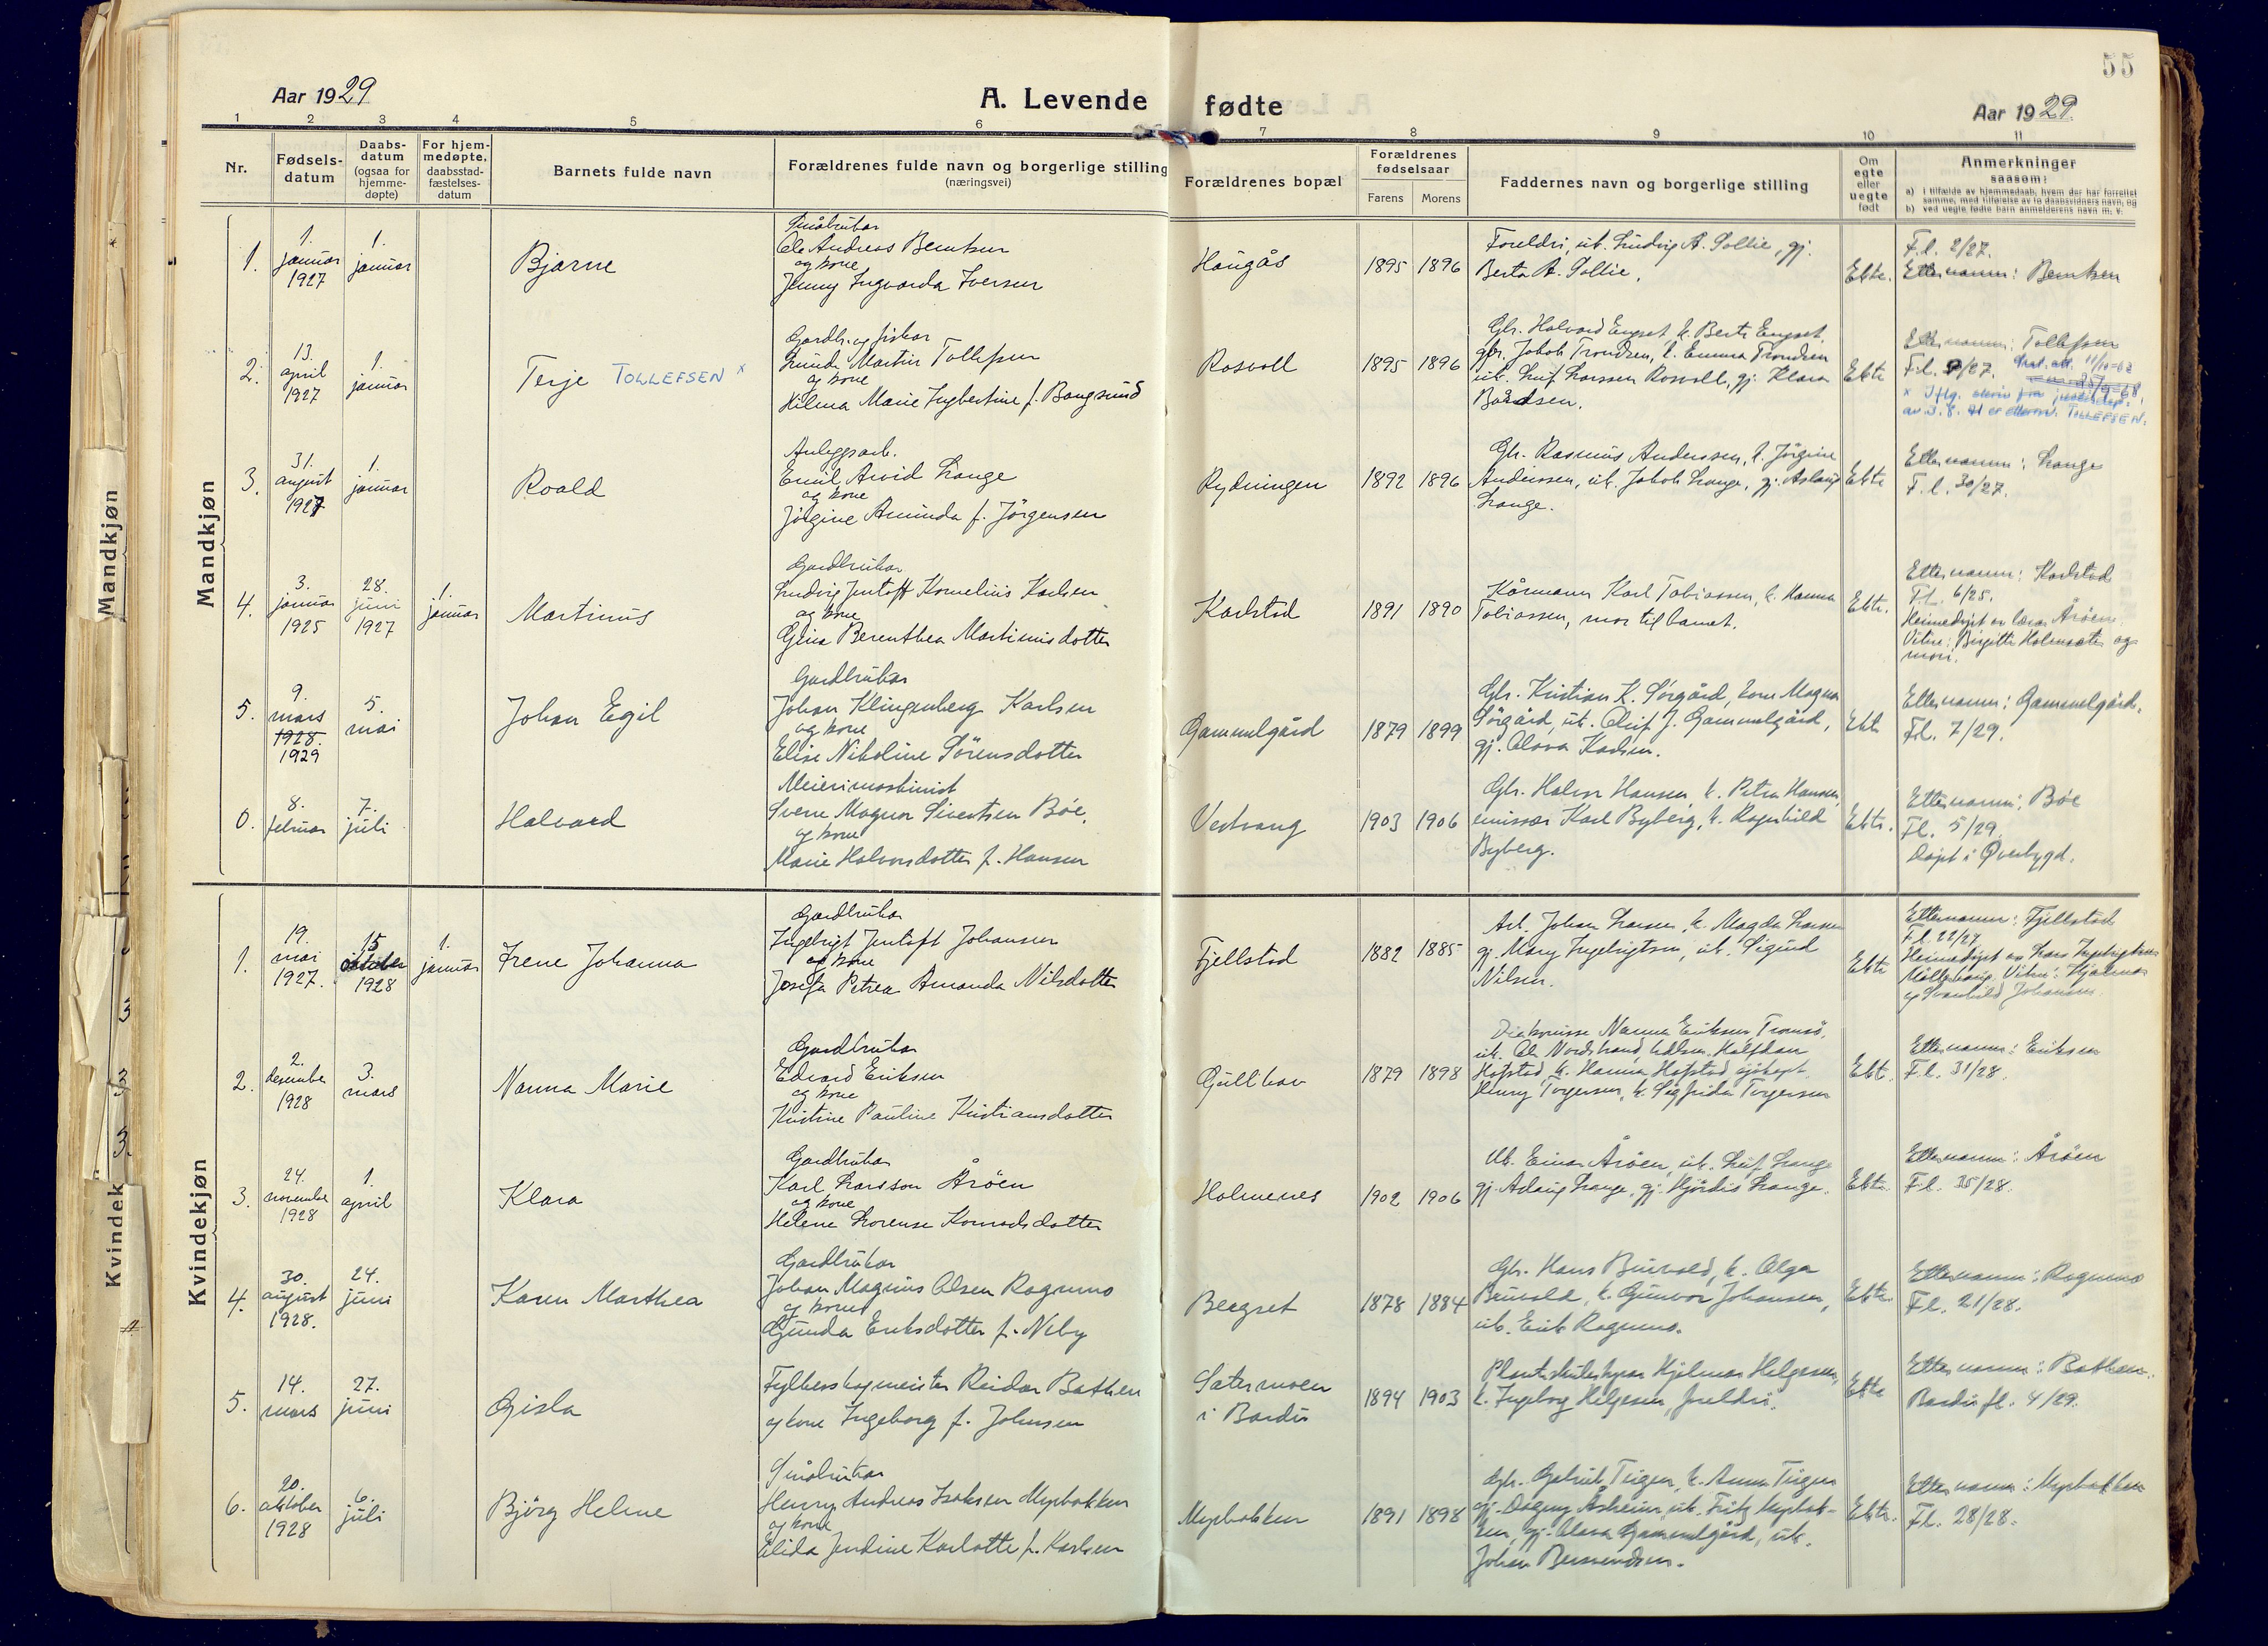 55
Aar 1929
A. Levende fødte
Aar 1929.
1 2 3 4 5 6 7 8 9 10 11
Nr.
Fødsels-
datum
Daabs-
datum
(ogsaa for
hjemme-
døpte)
For hjem-
medøpte,
daabsstad-
fæstelses-
datum
Barnets fulde navn
Forældrenes fulde navn og borgerlige stilling
(næringsvei)
Forældrenes bopæl
Forældrenes
fødselsaar
Farens Morens
Faddernes navn og borgerlige stilling
Om
egte
eller
uegte
født
Anmerkninger
saasom:
a) i tilfælde av hjemmedaab, hvem der har forrettet
samme, med tilføielse av to daabsvidners navn, og
b) ved uegte fødte barn anmelderens navn m. v.
Mandkjøn
Mandkjøn
1.
1.
januar
1927
1.
januar
Bjarne
Småbrukar
Ole Andreas Berntsen
og kone
Jenny Ingvarda Iversen
Haugås
1895 1896
Foreldri, uk. Ludvig A. Sollie, gj.
Berta A. Sollie.
Ekte.
F.l. 2/27.
Etternamn: Berntsen
2.
13.
april
1927
1.
januar
Terje TOLLEFSEN x
Gardbr. og fiskar
Martin Tollefsen
og kone
Hilma Marie Ingbertine f. Bangsund
Rosvoll
1895 1896
Gbr. Halvard Engset, k. Berte Engset,
gbr. Jakob Trondsen, k. Emma Trondsen
uk. Leif Larssen Rosvoll, gj. Klara
Bårdsen.
Ekte
Etternamn: Tollefsen
F.l. 9/27.
x Iflg. skriv fra justisdep.
av 3.8. er etternv. TOLLEFSEN.
3.
31.
august
1927
1.
januar
Roald
Anleggsarb.
Emil Arvid Lange
og kone
Jörgine Aminda f. Jörgensen
Rydningen
1892 1896
Gbr. Rasmus Anderssen, k. Jörgine
Anderssen, uk. Jakob Lange, gj. Aslaug
Lange.
Ekte
Etternamn: Lange
F.l. 30/27.
4.
3.
januar
1925
28.
juni
1927
1.
januar
Martinus
Gardbrukar
Ludvig Jentoft Kornelius Karlsen
og kone
Gina Berenthea Martinusdotter
Karlstad
1891 1890
Kårmann Karl Tobiassen, k. Hanna
Tobiassen, mor til barnet.
Ekte.
Etternamn: Karlstad
F.l. 6/25.
Heimedøpt av lærar Åröen.
Vitne: Birgitte Holmsæter og
mori.
5.
9.
mars
1928.
1929
5.
mai
Johan Egil
Gardbrukar
Johan Klingenberg Karlsen
og kone
Elise Nikoline Sörensdotter
Gammelgård
1879 1899
Gbr. Kristian K. Sörgård, kone Magna
Sörgård, uk. Oluf J. Gammelgård,
gj. Olava Karlsen.
Ekte
Etternamn: Gammelgård.
F.l. 7/29.
6.
8.
februar
7.
juli
Halvard
Meierimaskinist
Sverre Magnar Sivertsen Böe,
og kone
Marie Halvorsdotter f. Hansen
Vestvang
1903 1906
Gbr. Halvor Hansen, k. Petra Hansen,
emissær Karl Byberg, k. Ragnhild
Byberg.
Ekte.
Etternamn: Böe
F.l. 5/29.
Døpt i Øverbygd.
Kvindekjøn
Kvindek
1.
19.
mai
1927.
15
oktober
1928
1.
januar
Irene Johanna
Gardbrukar
Ingebrigt Jentoft Johansen
og kone
Josefa Petrea Amanda Nilsdotter
Fjellstad
1882 1885
Arb. Johan Larsen, k. Magda Larsen
gj. Mary Ingebrigtsen, uk. Sigurd
Nilsen.
Ekte
Etternamn: Fjellstad
F.l. 22/27.
Heimedøpt av Lars Ingebrigtsen
Vitne: Hjalmar
og Svanhild Johansen.
2.
2.
desember
1928
3.
mars
Nanna Marie
Gardbrukar
Edvard Eriksen
og kone
Kristine Pauline Kristiansdotter
Gullhav
1879 1898
Diakonisse Nanna Eriksen, Tromsö,
uk. Ole Nordstrand, Halfdan
Hofstad, k. Hanna Hofstad,
Henry Torgersen, k. Sigfrida Torgersen
Ekte.
Etternamn: Eriksen
F.l. 31/28.
3.
24.
november
1928
1.
april
Klara
Gardbrukar
Karl Larsson Åröen
og kone
Helene Lorense Konradsdotter
Holmenes
1902 1906
Uk. Einar Åröen, uk. Leif Lange
gj. Aslaug Lange, gj. Hjördis Lange.
Ekte.
Etternamn: Åröen
F.l. 35/28.
4.
30.
august
1928.
24.
juni
Karen Marthea
Gardbrukar
Johan Magnus Olsen Rognmo
og kone
Gunda Eriksdotter f. Neby
Bergset
1878 1884
Gbr. Hans Buvold, k. Olga
Buvold, k. Gunvor Johansen,
uk. Erik Rognmo.
Ekte.
Etternamn: Rognmo
F.l. 21/28.
5.
14.
mars
27.
juni
Gisla
Fylkesskogmeister Reidar Bathen
og kone Ingeborg f. Johnsen
Sætermoen
i Bardu
1894 1903
Planteskulestyrar Hjalmar Helgesen,
k. Ingeborg Helgesen, foreldri.
Ekte
Etternamn: Bathen.
Bardu fl. 4/29.
6.
20.
oktober
1928
6.
juli
Bjørg Helene
Småbrukar
Henry Andreas Isaksen Myrbakken
og kone
Elida Jendine Karlotte f. Karlsen
Myrbakken
1891 1898
Gbr. Gabriel Teigen, k. Anna Teigen
gj. Dagny Åsheim, uk. Fritz Myrbak-
ken, gj. Olava Gammelgård, uk.
Johan Bernendsen.
Ekte.
Etternamn: Myrbakken
F.l. 28/28.